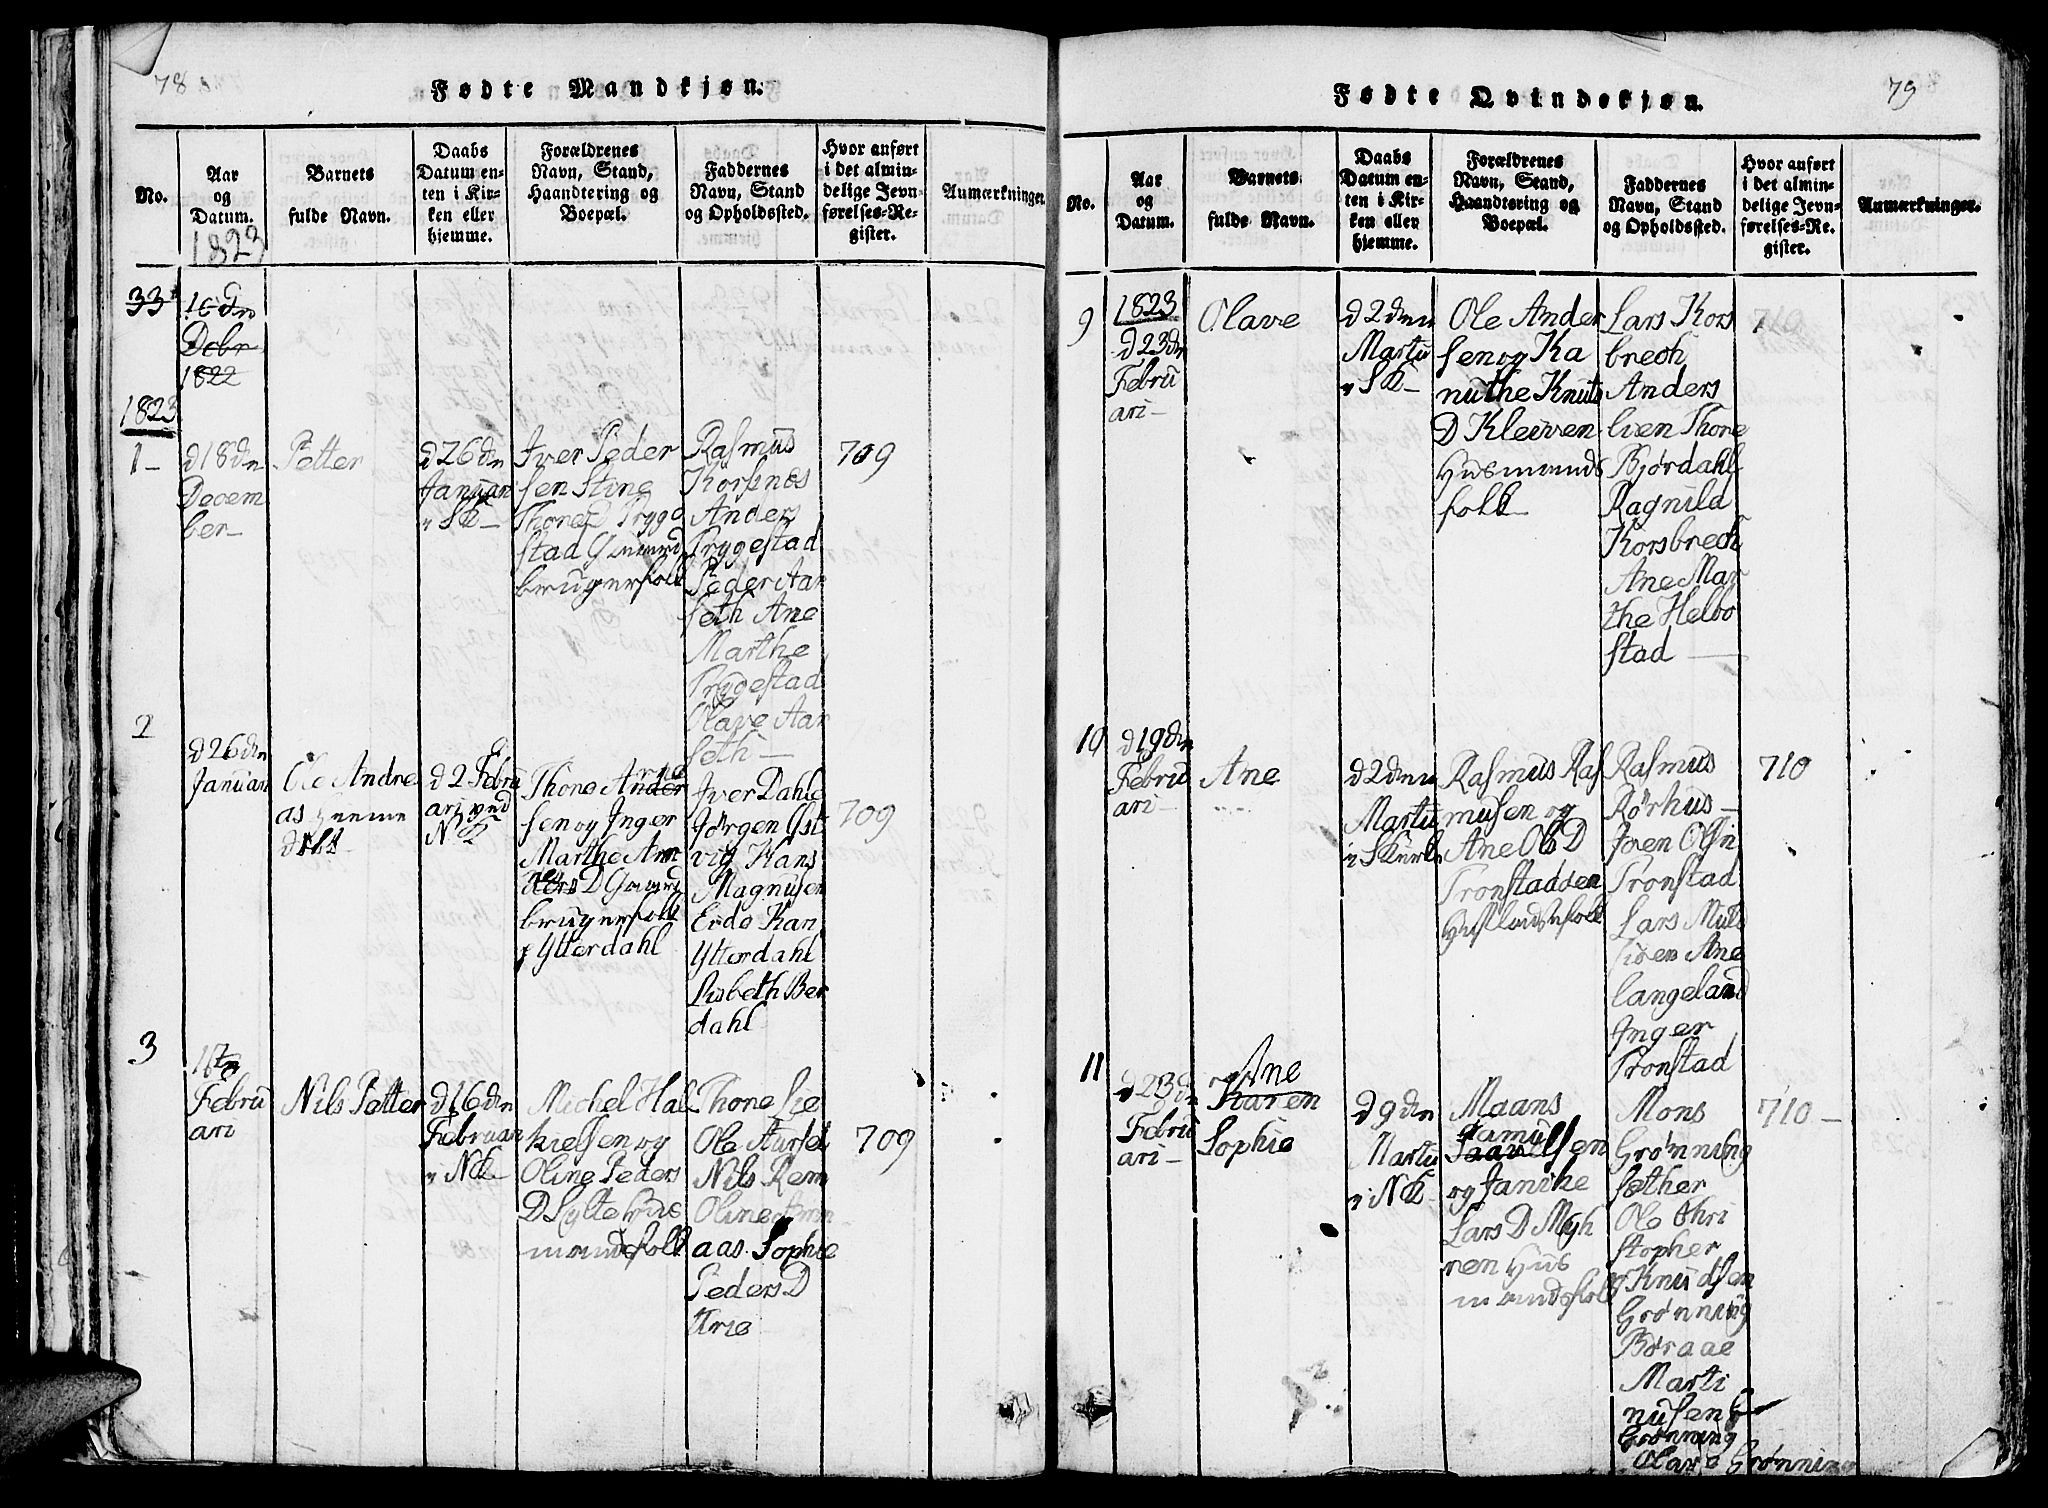 78
Fødte Mandkjøn.
No.
Aar
og
Datum.
1823
Barnets
fulde Navn.
Daabs
Datum en-
ten i Kir-
ken eller
hjemme.
Forældrenes
Navn, Stand,
Haandtering og
Boepæl.
Faddernes
Navn, Stand
og Opholdssted.
Hvor anført
i det almin-
delige Jevn-
førelses-Re-
gister.
Anmærkninger.
33
Debr
1822
1823
1-
d18dn
Decem
ber-
Petter
d26dn
Januari
i SK-
Iver Peder
sen Stine
Thores D Trygd
stad Gaard
brugerfolk
Rasmus
Korsnes
Anders
Trygestad
Peder Aar
seth Ane
Marthe
Trygestad
Olave Aar
seth-
709
2
d26dn
Januari
Ole Andre
as
d2 Febru
ari ved
NK
Thore Arne
sen og Inger
Marthe Arn
D Gaard
brugerfolk
i Ytterdahl
Iver Dahle
Jørgen Yst
vig Hans
Magnusen
Erde Kan
Ytterdahl
Lisbeth Ber
dahl
709
3
Febru
ari
Nils Petter
d16dn
Februari
i NK-
Michel Hal
kielsen og
Oline Peders
D Sylte Hus
mandsfolk
Thore Lie
Ole Aursel
Nils Rem
Oline Amm
aas. Sophie
Peders D
Krie
709
79
Fødte Qvindekjøn.
No.
Aar
og
Datum.
Barnets
fulde Navn.
Daabs
Datum en-
ten i Kir-
ken eller
hjemme.
Forældrenes
Navn, Stand,
Haandtering og
Boepæl.
Faddernes
Navn, Stand
og Opholdssted.
Hvor anført
i det almin-
delige Jevn-
førelses-Re-
gister.
Anmærkninger.
9
1823
d23dn
Febru
ari-
Olave
d2den
Marti
i SK-
Ole Ander
sen og Ka
nuthe Knuts
D Kleiven
Husmands
folk
Lars Kors
brech
Anders
lien Thore
Bjørdahl
Ragnild
Korsbrech
Ane Mar
the Helbo
stad
710
10
d19dn
Febru
ari-
Ane
d2den
Marti
i SKirk
Rasmus Ras
musen og
Ane Ols D
Tronstadsen
Rasmus
Rørhus-
Iven Olsn
Tronstad
Lars Muls
siden Ane
Langeland
Inger
Tronstad
710
11
d23dn
Febru
ari-
Ane
Karen
Sophie
d9dn
Marti
i NK
Maans
Samu
elsen
og Janike
Lars D Myh
ren Hus
mandsfolk
Mons
Grønning
sæther
Ole Chri
stopher
Knudsen
Grønning
Boraae
Marti
nusen
Grønning
Olave Grønning
710-